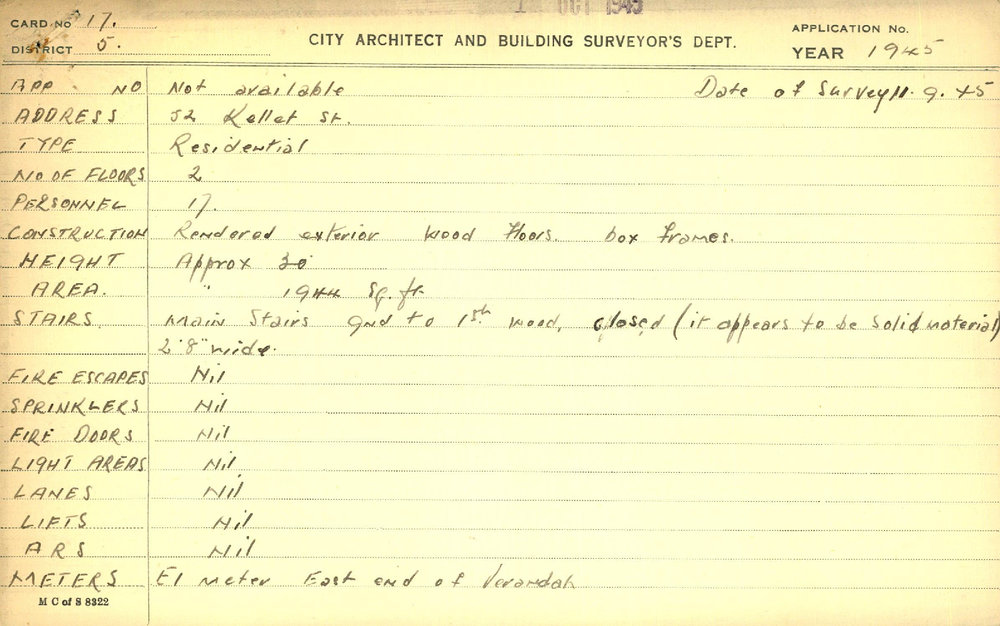 OCT 1945
CARD NO 17.
DISTRICT 5.
CITY ARCHITECT AND BUILDING SURVEYOR'S DEPT.
APPLICATION No.
YEAR 1945
APP. NO Not available Date of Survey 11.9.45
ADDRESS 52 Kellet St.
TYPE Residential
NO OF FLOORS 2
PERSONNEL 17.
CONSTRUCTION Rendered exterior Wood Floors. box frames.
HEIGHT Approx 30'
AREA. " 1944 Sq. ft
STAIRS. Main Stairs Gnd to 1st. wood, closed (it appears to be solid material)
2'8" wide.
FIRE ESCAPES Nil
SPRINKLERS Nil
FIRE DOORS Nil
LIGHT AREAS Nil
LANES Nil
LIFTS Nil
ARS Nil
METERS El meter East end of Verandah
M C of S 8322